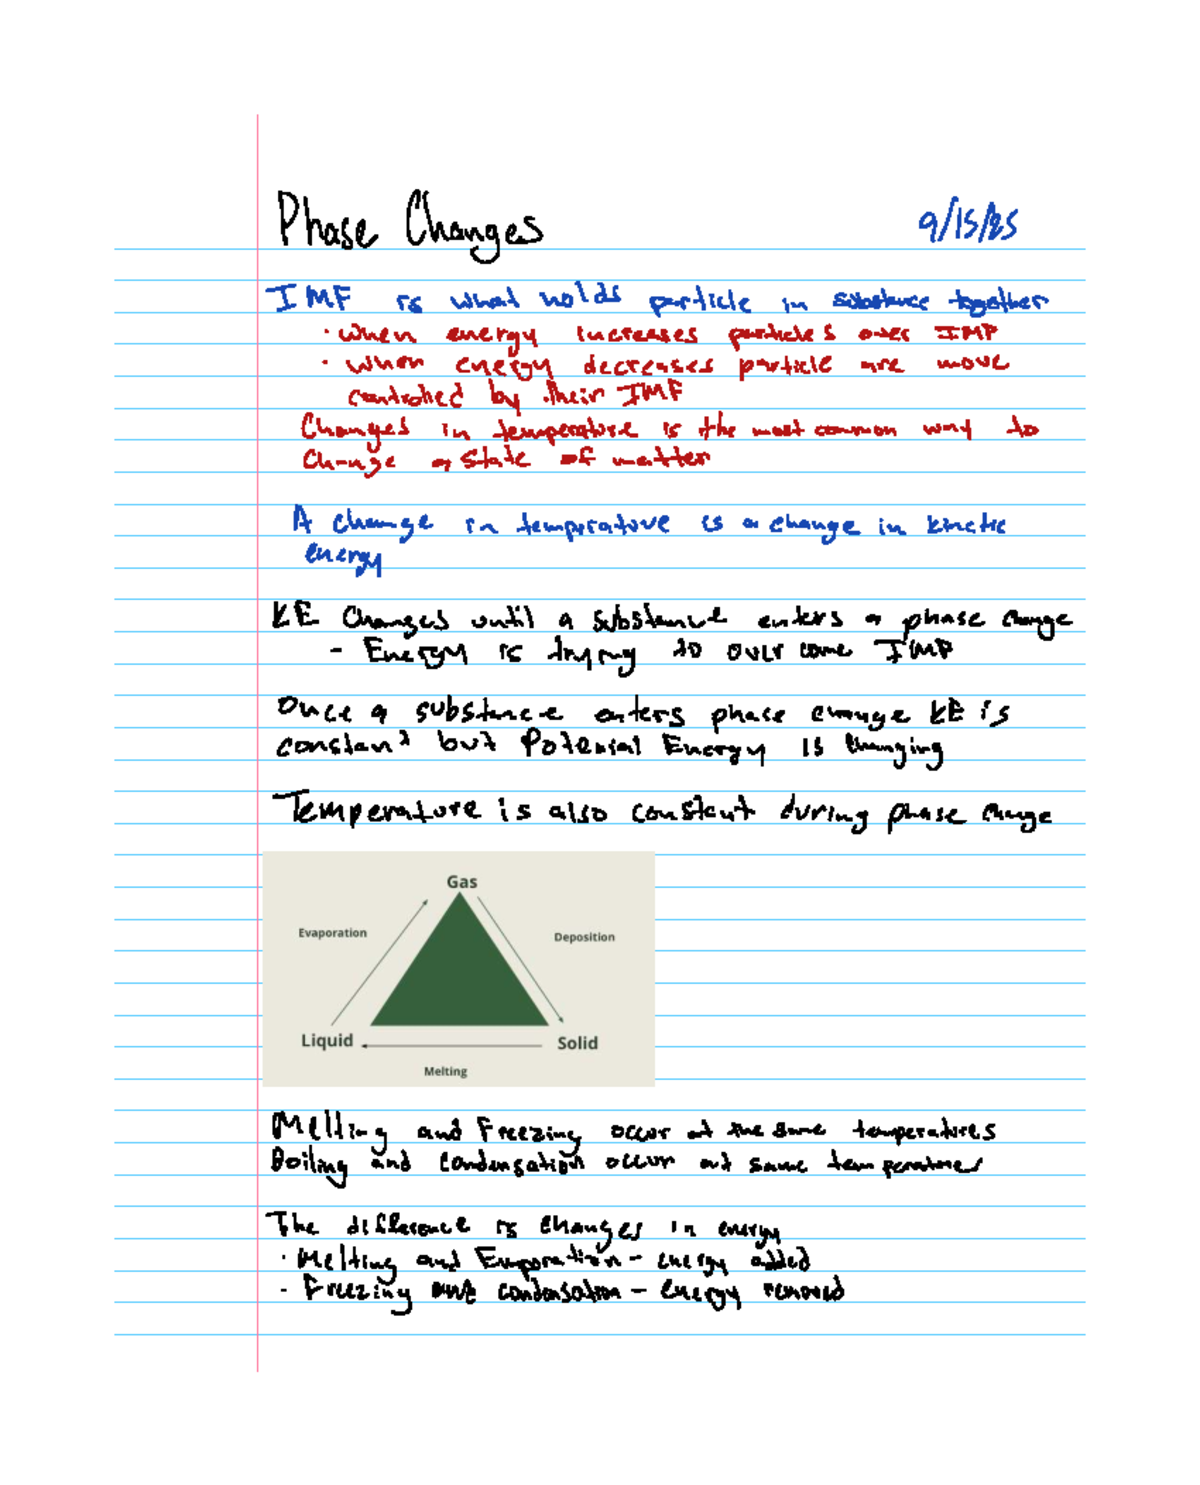 Phase Changes 9/15/25
IMF is what holds particle in substance together
· when energy increases particles over IMF
· when energy decreases particle are move
controlled by their IMF
Changes in temperature is the most common way to
Change a state of matter
A change in temperature is a change in kinetic
energy
KE Changes until a substance enters a phase change
- Energy is trying to over come IMF
Once a substance enters phase change KE is
constant but Potenial Energy is changing
Temperature is also constant during phase change
Gas
Evaporation
Deposition
Liquid
Solid
Melting
Melting and Freezing occur at the same temperatures
Boiling and Condensation occur at same temperatures
The difference is changes in energy
· Melting and Evaporation - energy added
- Freezing and condensation - energy removed